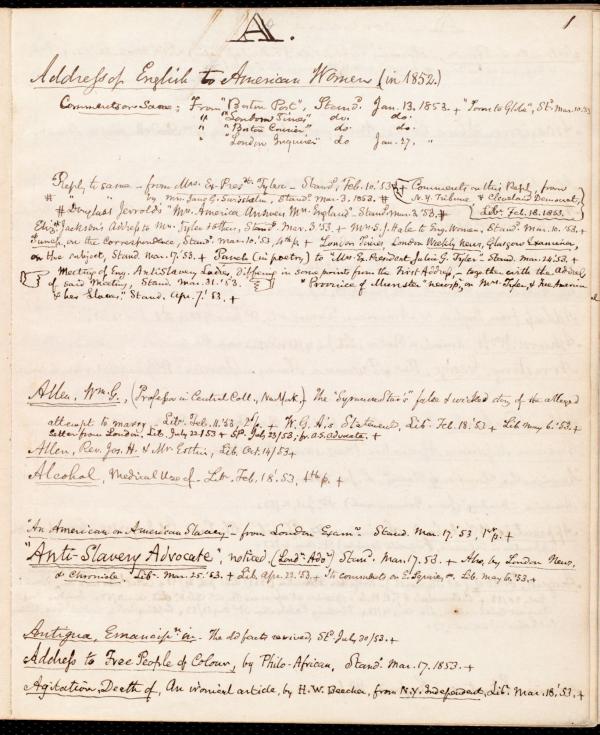 A.
1
Address of English to American Women (in 1852.)
Comments on Same; From "Boston Post", Stand. Jan. 13, 1853. + "Toronto Globe", St. Mar. 10. 53
" "London Times" do. do.
" "Boston Courier" do. do.
" "London Inquirer" do Jan. 27. "
Reply to same - from Mrs. Ex-Pres.t Tyler - Stand. Feb. 10. '53 + Comments on this Reply, from
# " " by Mrs. Jane G. Swisshelm, Stand. Mar. 3, 1853. # N.Y. Tribune, & Cleveland Democrat,
# Douglass Jerrold's "Mrs. America Answers Mrs. England" Stand. Mar. 3. '53. # Lib. Feb. 18. 1853.
Eliz. Jackson's Address to Mrs. Tyler & others, Stand. Mar. 3. '53 + Mrs. S. J. Hale to Eng. Women, Stand. Mar. 10. '53. +
Punch, on the Correspondence, Stand. Mar. 10. '53, 4th p. + London Times, London Weekly News, Glasgow Examiner,
on the subject, Stand. Mar. 17. '53. + Punch (in poetry) to "Mrs. Ex. President Julia G. Tyler" Stand. Mar. 24. '53. +
Meeting of Eng. Antislavery Ladies, Differing in some points from the First Address, - together with the Address
of said Meeting, Stand. Mar. 31. '53. "Province of Munster" newsp. on Mrs. Tyler, & Free America
& her Slaves," Stand. Apr. 7. '53. +
Allen, Wm. G., (Professor in Central Coll., New York,) The "Syracuse Star's" false & wicked story of the alleged
attempt to marry - Lib. Feb. 11. '53, 2d p. + W. G. A.'s Statement, Lib. Feb. 18. '53 + Lib. May 6. '53. +
Letter from London, Lib. July 22/53 + St. July 23/53; fr. A.S. Advocate. +
Allen, Rev. Jos. H. & Mr. Estlin, Lib. Oct. 14/53 +
Alcohol, Medical Use of - Lib. Feb. 18. '53, 4th p. +
"An American on American Slavery" - from London Exam. Stand. Mar. 17. '53, 1st p. +
"Anti-Slavery Advocate", noticed, (Lond. Adv.) Stand. Mar. 17. 53. + Also, by London News,
& Chronicle, Lib. Mar. 25. '53. + Lib. Apr. 22. 53. + Its comments on E. Squier, Lib. May 6. '53. +
Antigua, Emancip.n in - The old facts revived, St. July 30/53. +
Address to Free People of Colour, by Philo-African, Stand. Mar. 17. 1853. +
Agitation, Death of, An ironical article, by H. W. Beecher, from N.Y. Independent, Lib. Mar. 18. '53. +